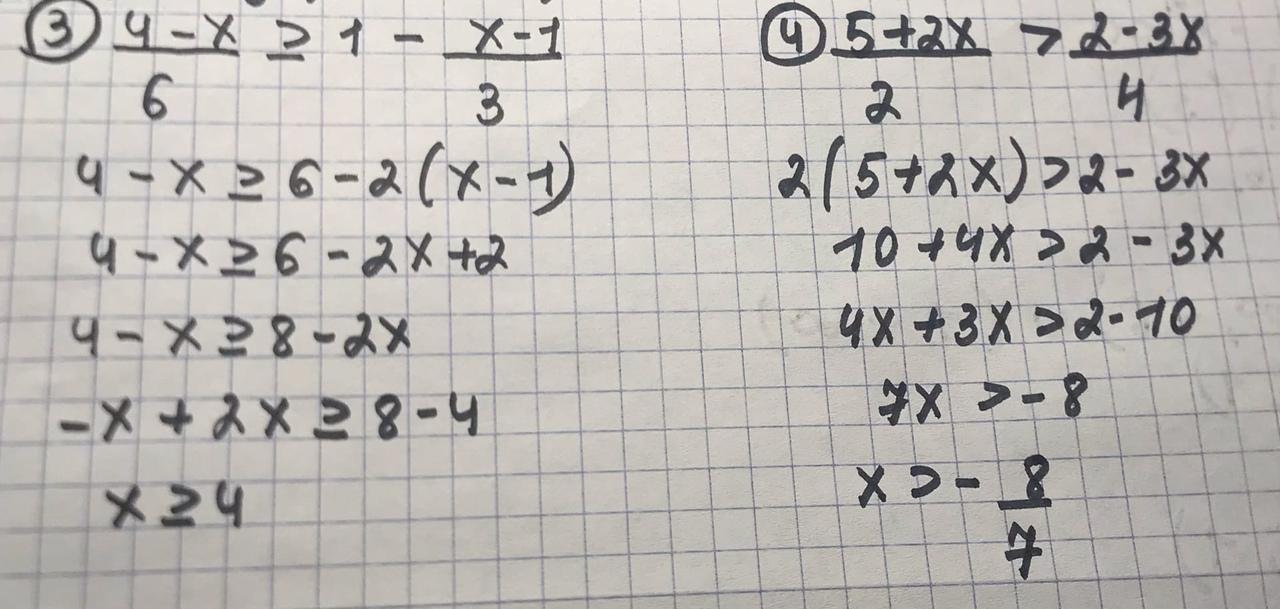 ③ (4 - x)/6 ≥ 1 - (x-1)/3
4 - x ≥ 6 - 2(x - 1)
4 - x ≥ 6 - 2x + 2
4 - x ≥ 8 - 2x
-x + 2x ≥ 8 - 4
x ≥ 4
④ (5+2x)/2 > (2-3x)/4
2(5+2x) > 2 - 3x
10 + 4x > 2 - 3x
4x + 3x > 2 - 10
7x > -8
x > - 8/7